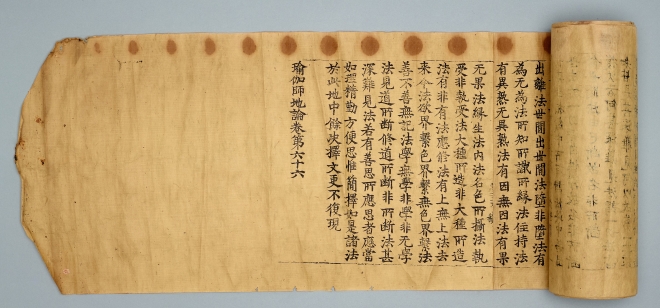 出離法世間出世間法墮非墮法有
為无為法所知所識所緣法住持法
有異熟无異熟法有因无因法有果
无果法緣生法內法名色所攝法執
受非執受法大種所造非大種所造
法有非有法應修法有上無上法去
來今法欲界繫色界繫無色界繫法
善不善無記法學無學非學非无學
法見道所斷修道所斷非所斷法甚
深難見法若有善思所應思者應當
如理精勤方便思惟簡擇如是諸法
於此地中餘決擇文更不復現
瑜伽師地論卷第六十六